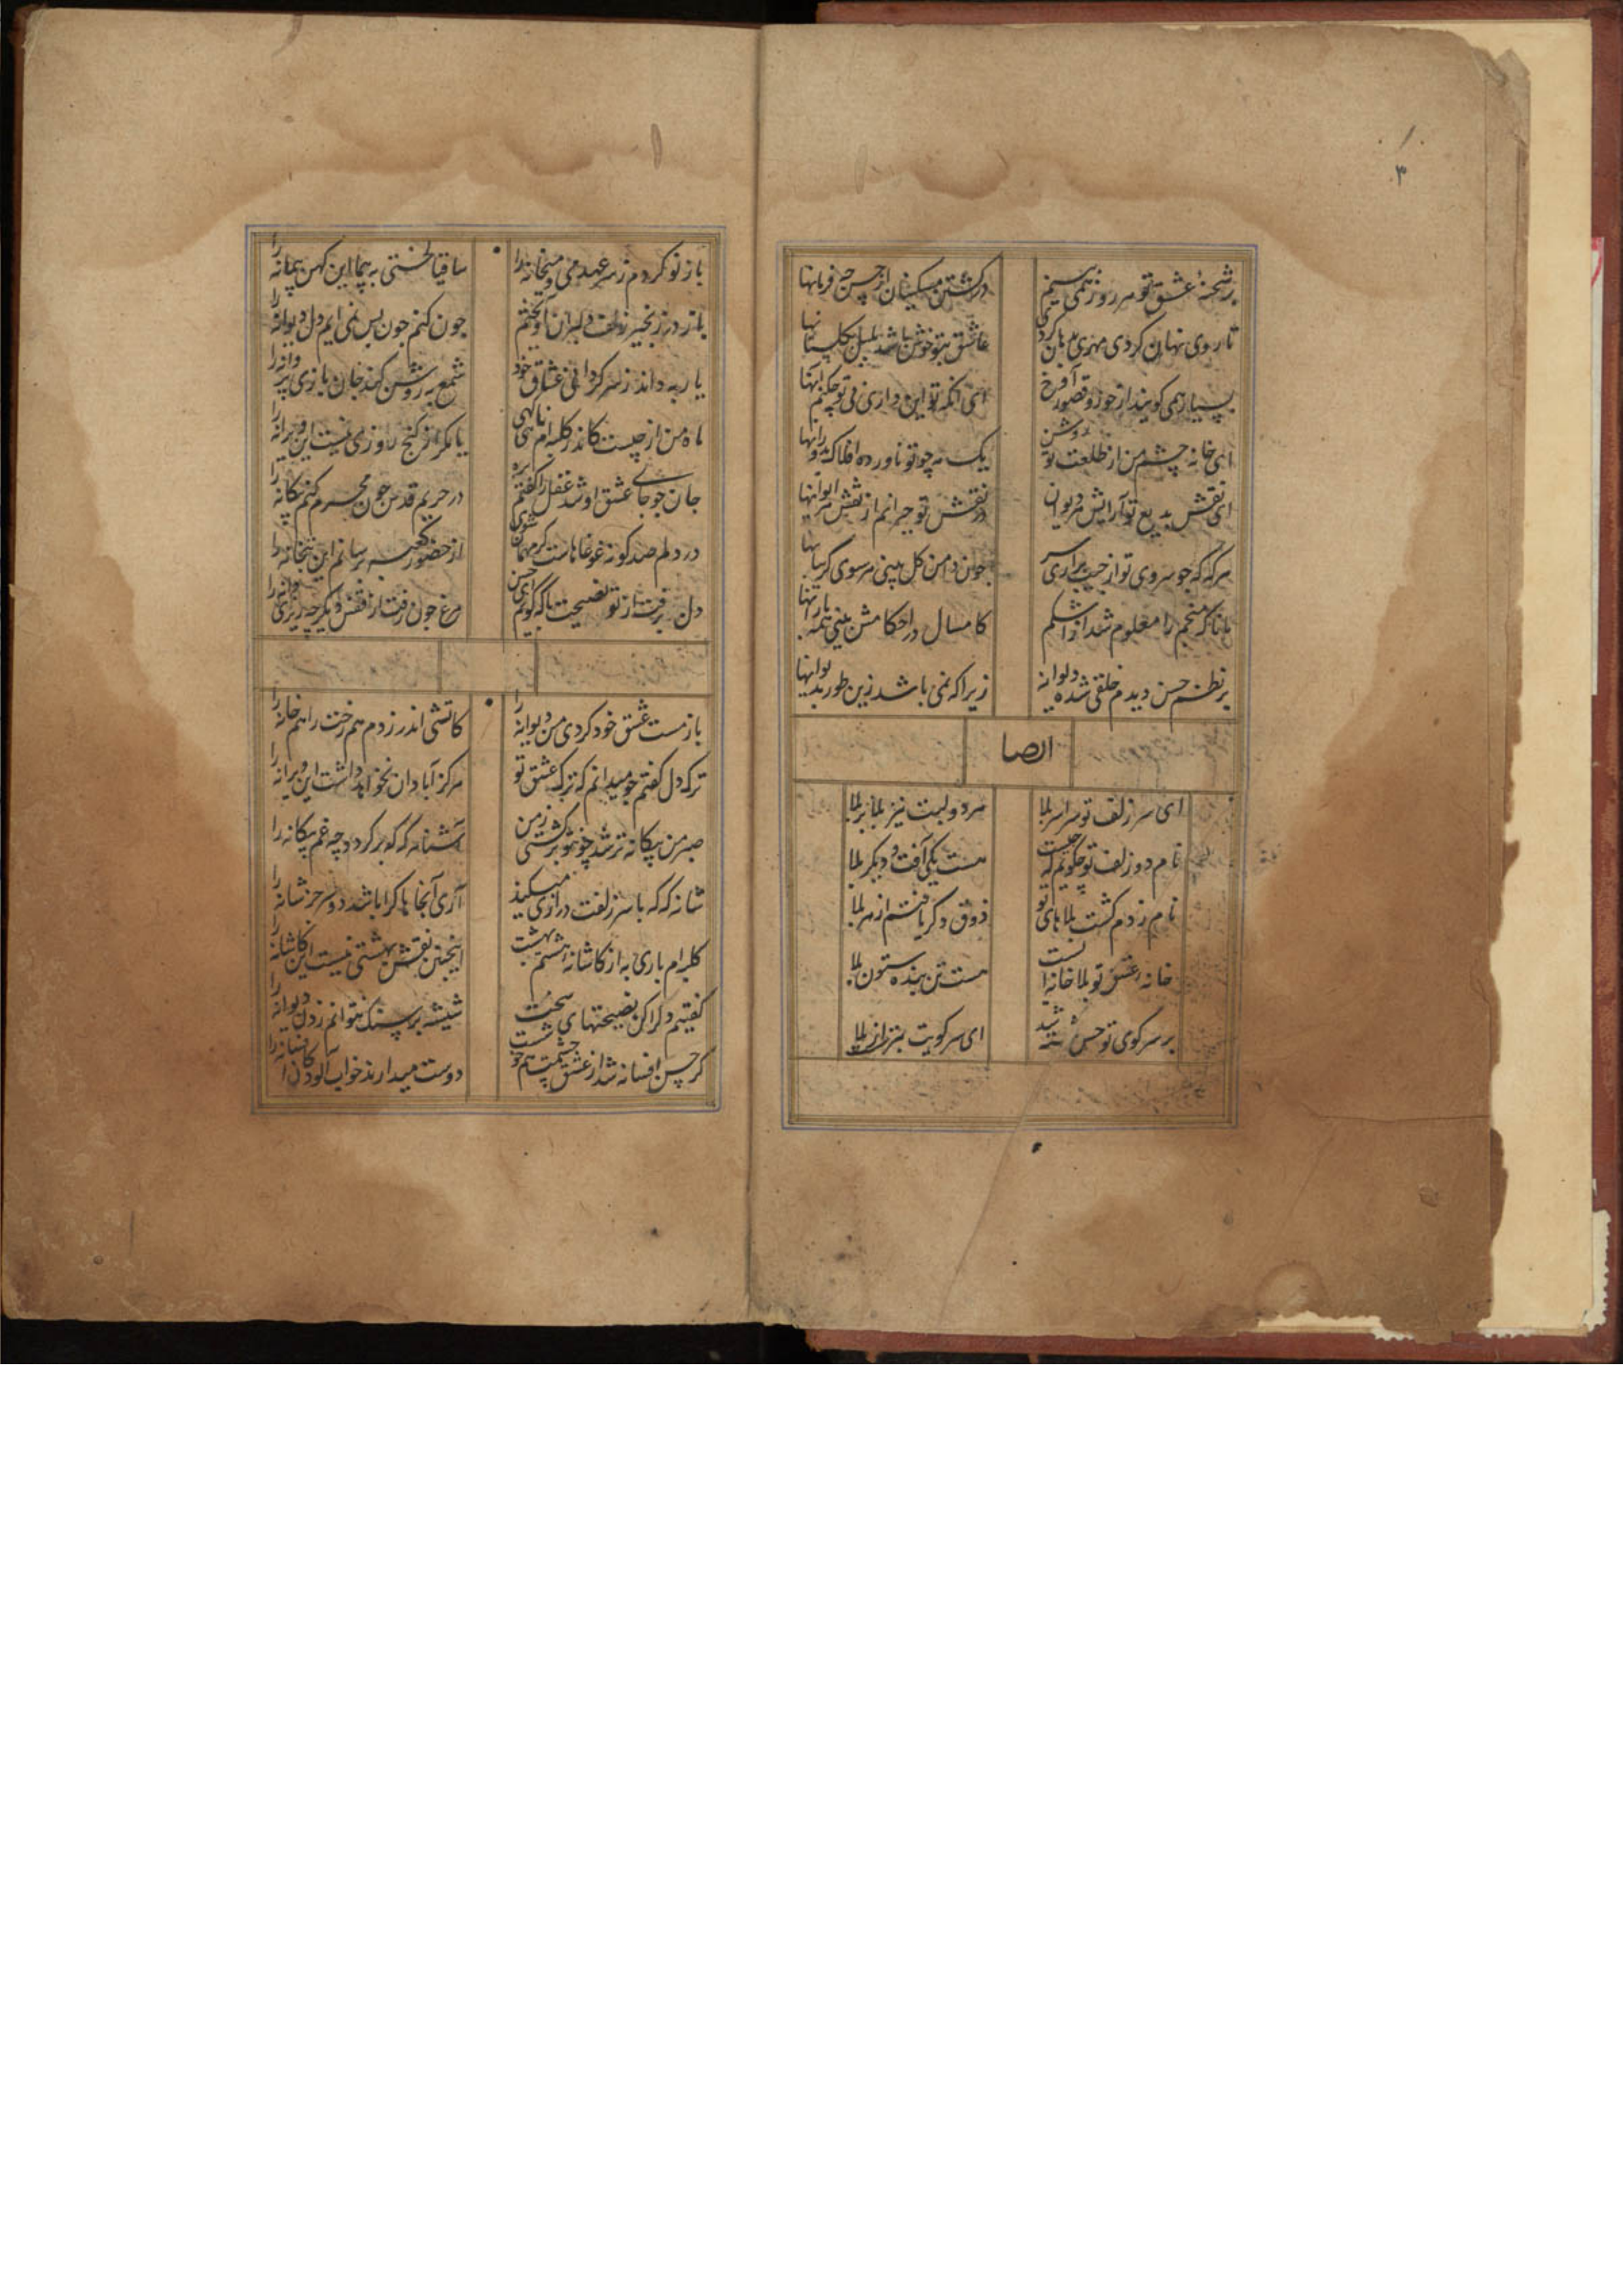 ۳
بر شحنهٔ عشق تو هر روز همی بینم در کشتن مسکینان از حسن چه فرمانها
تا روی نهان کردی مهری عاشق بتو خوش باشد بلبل بگلستانها
بسیار همی گویند از حور و قصور آخر ای آنکه تو این داری بی تو چکنم آنها
ای خانه چشم من از طلعت تو روشن یک مه چو تو ناورده افلاک بدورانها
ای نقش بدیع تو آرایش هر دیوان در نقش تو حیرانم از نقش در ایوانها
هرگه که چو سروی تو از جیب براری سر چون دامن گل بینی هر سوی گریبانها
مانا که منجم را معلوم شد از اشکم کامسال در احکامش بینی همه بارانها
بر نظم حسن دیدم خلقی شده دیوانه زیرا که نمی باشد زین طور بدیوانها
ایضا
ای سر زلف تو سراسر بلا هر دو لبت نیز بلا بر بلا
نام دو زلف تو چگویم که چیست هست یکی آفت و دیگر بلا
نام زدم گشت بلاهای تو ذوق دگر یافتم از هر بلا
خانه عشق تو بلا خانه ایست هست تن بنده ستون بلا
بر سر کوی تو حسن شد ای سر کویت بتر از بلا
باز نو کردم ز سر عهد می و میخانه را ساقیا لختی به پیما این کهن پیمانه را
باز در زنجیر زلف دلبران آویختم چون کنم چون بس نمی ایم دل دیوانه را
یار به داند ز سر گردانی عشاق خود شمع به روشن کند جان بازی پروانه را
ماه من از چیست کاندر کلبه ام نایی همی یا مگر از گنج روزی نیست این ویرانه را
جان چو جای عشق او شد عقل را گفتم بره در حریم قدس چون محرم کنم بیگانه را
در دلم صد گونه غوغاهاست گر مهمان شوی از حضور کعبه برسانم این بتخانه را
دل برفت از تو نصیحت با که گویم ای حسن مرغ چون رفت از قفس دیگر چه ریزی دانه را
باز مست عشق خود کردی من دیوانه را کاتشی اندر زدم هم رخت را هم خانه را
ترک دل گفتم چو میدانم که ترک عشق تو هرگز آبادان نخواهد داشت این ویرانه را
صبر من بیگانه تر شد چون تو برگشتی ز من آشنا گه گه بر گردد چه غم بیگانه را
شانه گه گه با سر زلفت درازی میکند آری آنجاها کرا باشد دو سر جز شانه را
کلبه ام باری به از کاشانه هشتم بهشت اینچنین نقش بهشتی نیست این کاشانه را
گفتیم دگر کن نصیحتهای سخت شیشه بر سنگ نتوانم زدن دیوانه را
گر حسن افسانه شد از عشق چشمت هم خوشست دوست میدارند خواب آلودگان افسانه را